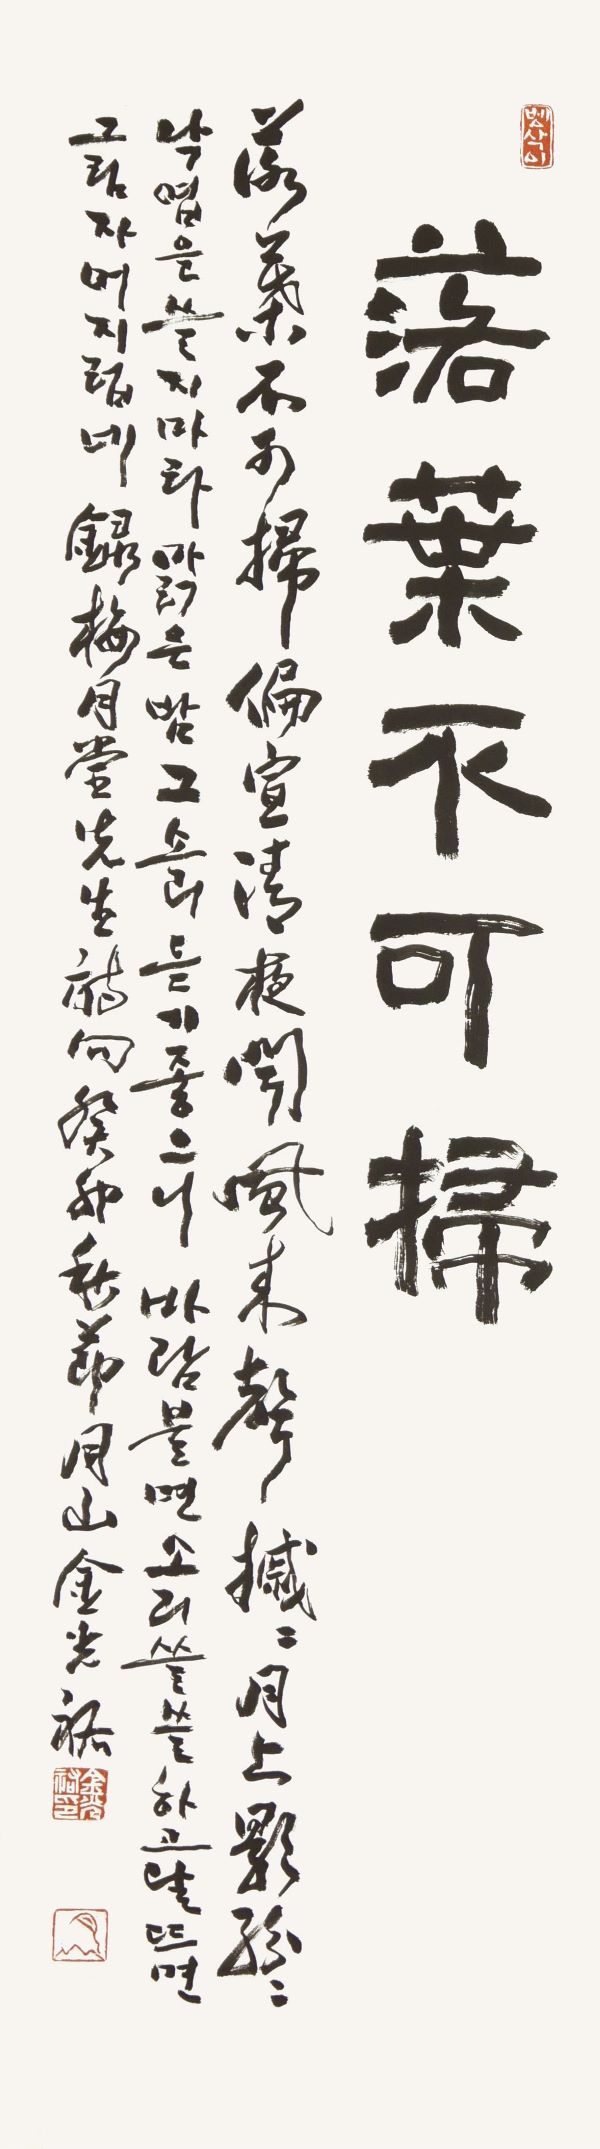 落葉不可掃
落葉不可掃偏宜清夜聞風來聲摵〻月上影紛〻
낙엽을 쓸지마라 맑은 밤 그 소리 듣기 좋으니 바람 불면 소리 쓸쓸하고 달 뜨면
그림자 어지럽네 錄梅月堂先生詩句 癸卯秋節 月山 金光祐
金光祐印